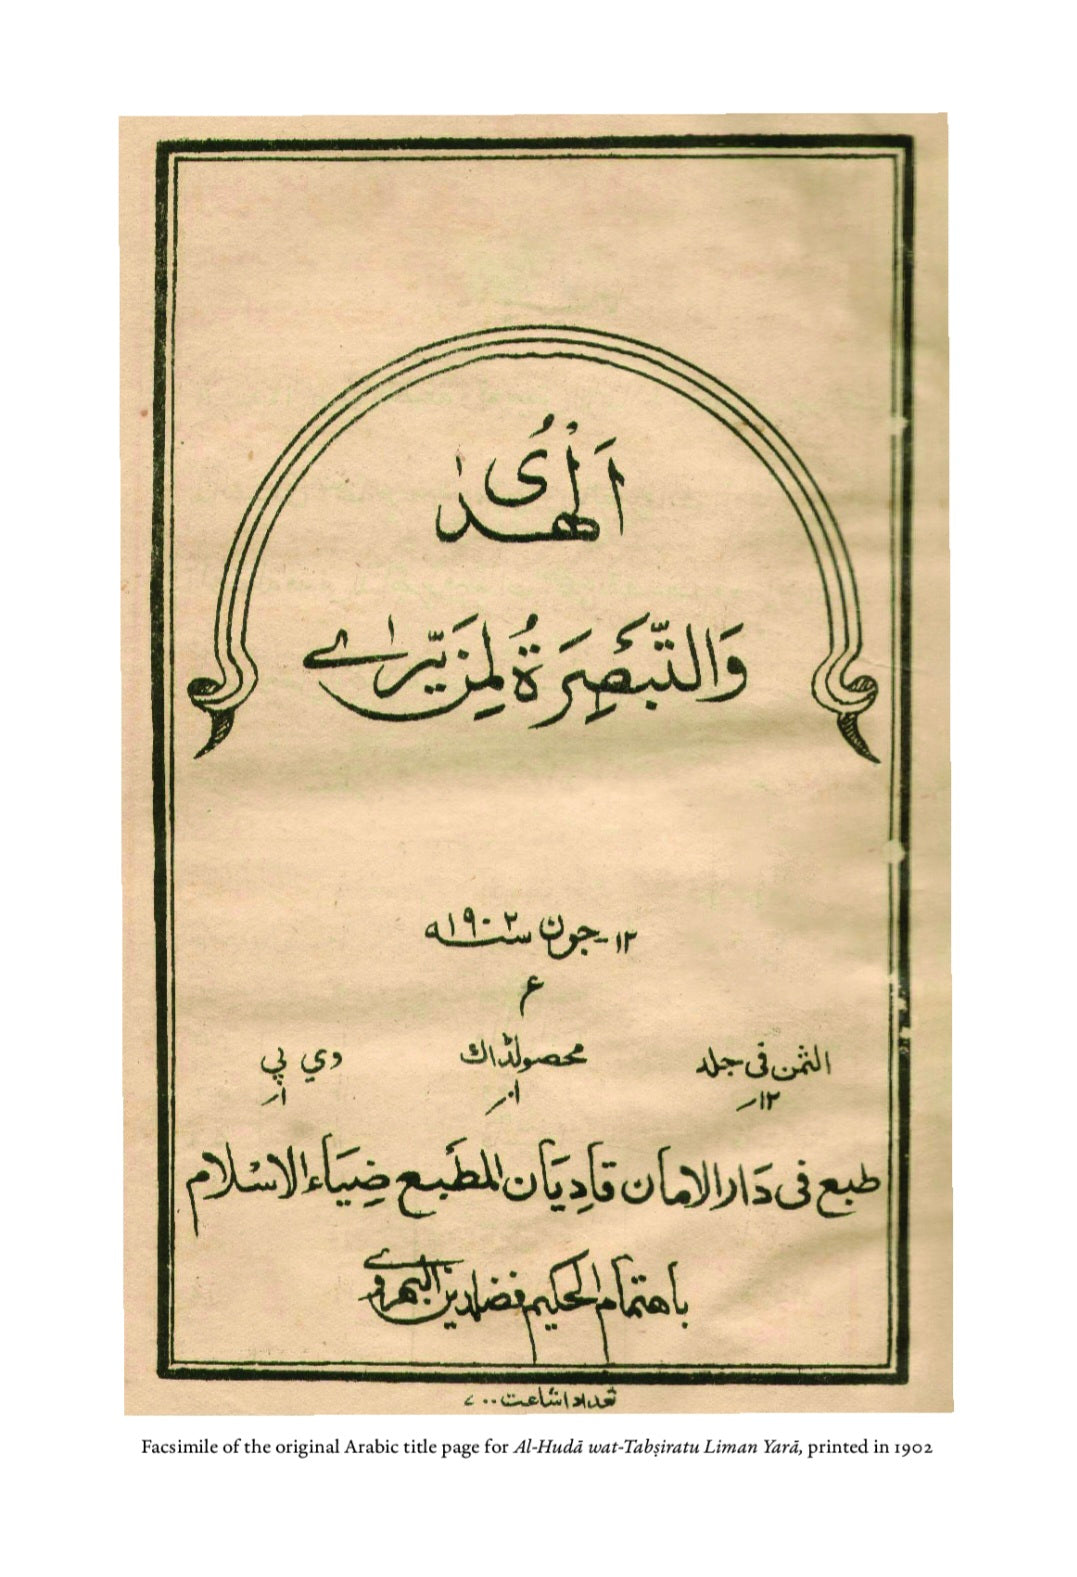 اَلْهُدٰى
وَالتَّبْصِرَةُ لِمَنْ يَّرٰى
١٢-جون سنه ١٩٠٢
ء
الثمن فی جلد محصولڈاک وي پي
١٢؍ ١؍ ١؍
طبع فی دَار الامان قَادِيَان المطَبع ضِيَاء الاسْلام
باهتمام الحكيم فضلدين البهيروى
تعداد اشاعت ٧٠٠
Facsimile of the original Arabic title page for Al-Hudā wat-Tabṣiratu Liman Yarā, printed in 1902